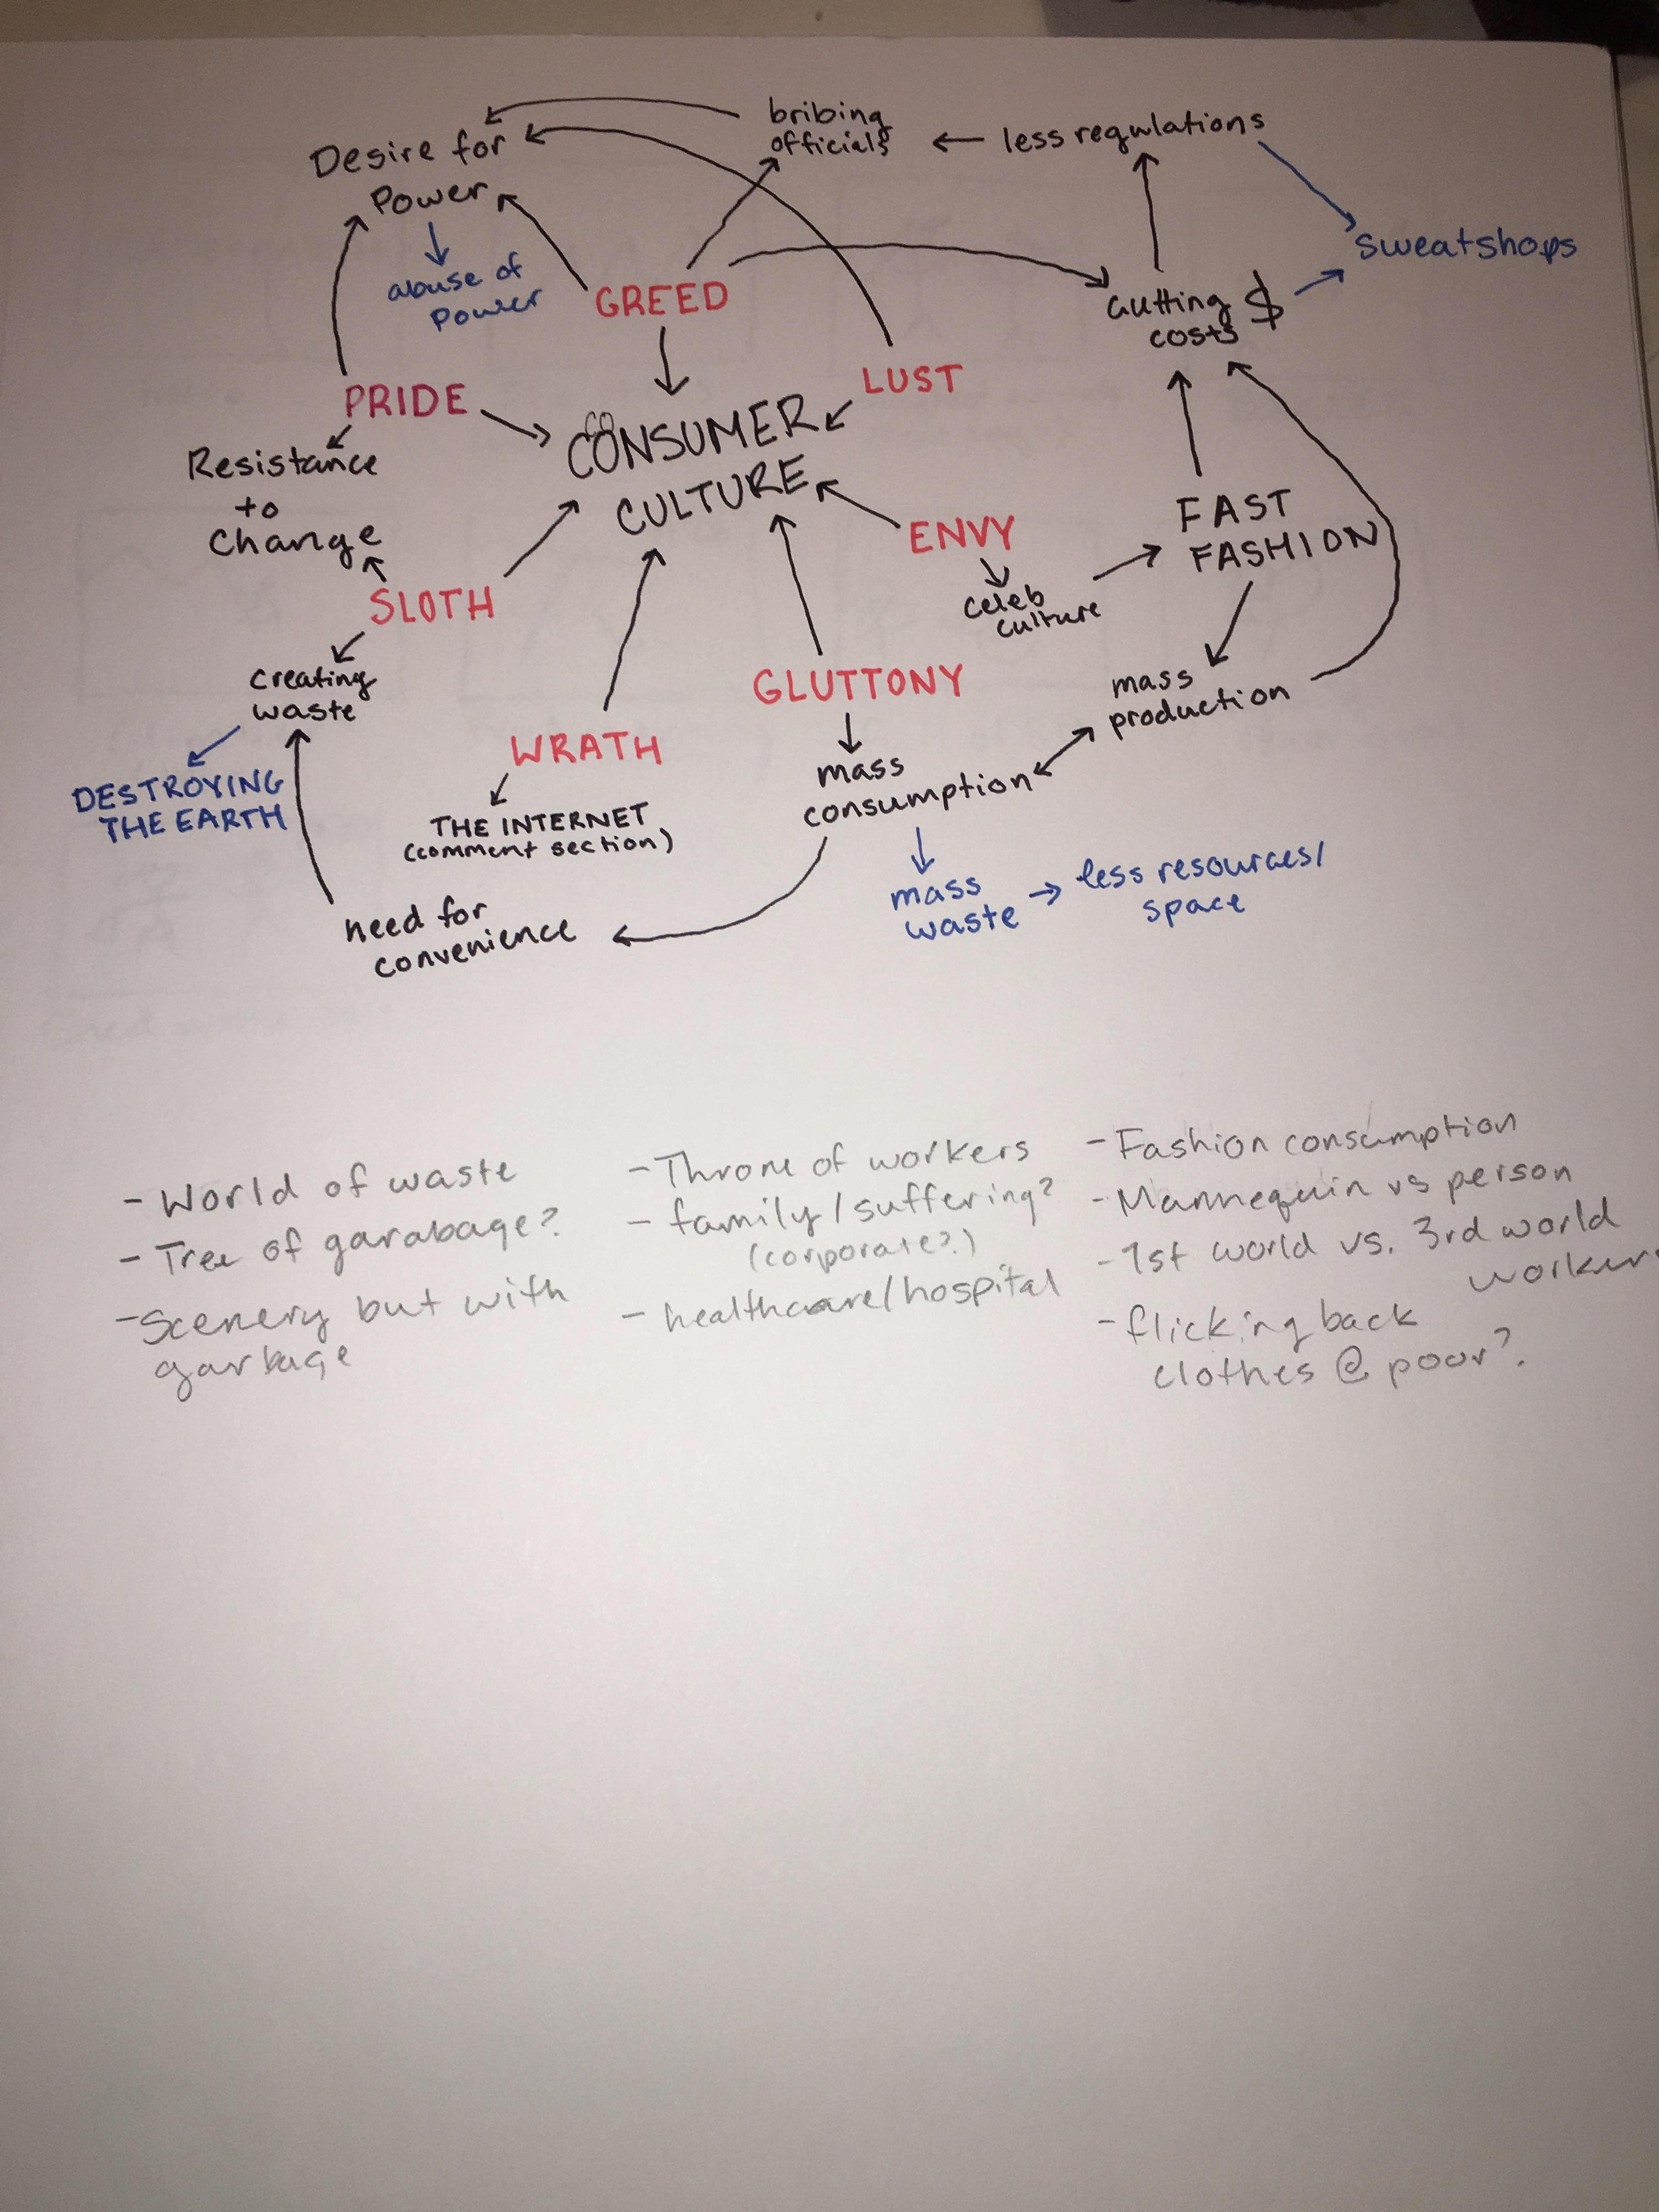 bribing
officials
less regulations
Desire for
Power
abuse of
Power
sweatshops
GREED
Cutting $
costs
LUST
PRIDE
CONSUMER
CULTURE
Resistance
to
Change
FAST
FASHION
ENVY
celeb
culture
SLOTH
creating
waste
GLUTTONY
mass
production
WRATH
mass
consumption
DESTROYING
THE EARTH
THE INTERNET
(comment section)
mass
waste
less resources/
space
need for
convenience
- World of waste
- Tree of garabage?
- Scenery but with
garbage
- Throne of workers
- family/suffering?
(corporate?)
- healthcare/hospital
- Fashion consumption
- Mannequin vs person
- 1st world vs. 3rd world
workers
- flicking back
clothes @ poor?